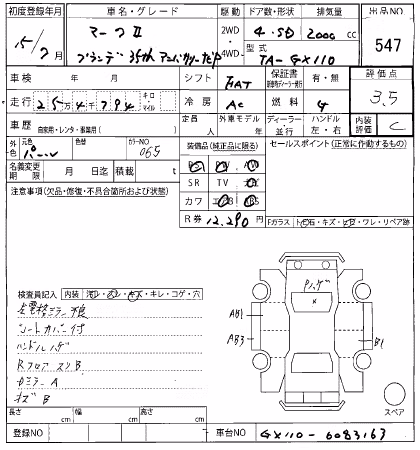 初度登録年月 車名・グレード 駆動 ドア数・形状 排気量 出品NO
15/7月 マークII 2WD・ 4・SD 2000 cc 547
グランデ 35th アニバーサリー ナビP 4WD・ 型式 TA-GX110
車検 年 月 シフト FAT 保証書 有・無 評価点
走行 25万4千794 キロ・マイル 冷房 AC 燃料 G 3.5
車歴 自家用・レンタ・事業用( ) 定員 人 外車モデル 年 ディーラー・並行 ハンドル 左・右 内装評価 C
外色 元色 パール 色替 カラーNO 065 装備品(純正品に限る) セールスポイント(正常に作動するもの)
名義変更期限 月 日迄 積載 t PS PW AW
注意事項(欠品・修復・不具合箇所および状態) SR TV
カワ
R券 12,290 円 Fガラス
検査員記入 内装 キレ・コゲ・穴
左電格ミラー不良
シートカバー付
ハンドルハゲ
Rフロアスリ B
カミラー A
キズ B
Pハゲ
AB1
AB3
B1
スペア
長さ cm 幅 cm 高さ cm
登録NO 車台NO GX110-6083163